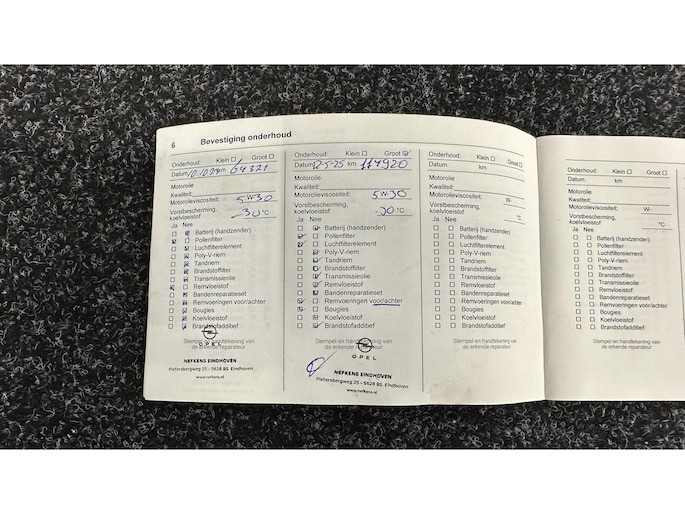 6 Bevestiging onderhoud
Onderhoud: Klein ☐ Groot ☐
Datum 12.10.24 km 64321
Motorolie
Kwaliteit:
Motorolieviscositeit: 5W-30
Vorstbescherming, koelvloeistof -30 °C
Ja Nee
Batterij (handzender)
Pollenfilter
Luchtfilterelement
Poly-V-riem
Tandriem
Brandstoffilter
Transmissieolie
Remvloeistof
Bandenreparatieset
Remvoeringen voor/achter
Bougies
Koelvloeistof
Brandstofadditief
OPEL
Stempel en handtekening van
de erkende reparateur
NEFKENS EINDHOVEN
Pietersbergweg 25 - 5628 BS Eindhoven
www.nefkens.nl
Onderhoud: Klein ☐ Groot ☑
Datum 12-5-25 km 117920
Motorolie
Kwaliteit:
Motorolieviscositeit: 5W-30
Vorstbescherming, koelvloeistof -30 °C
Ja Nee
Batterij (handzender)
Pollenfilter
Luchtfilterelement
Poly-V-riem
Tandriem
Brandstoffilter
Transmissieolie
Remvloeistof
Bandenreparatieset
Remvoeringen voor/achter
Bougies
Koelvloeistof
Brandstofadditief
Stempel en handtekening van
de erkende reparateur
OPEL
NEFKENS EINDHOVEN
Pietersbergweg 25 - 5628 BS Eindhoven
www.nefkens.nl
Onderhoud: Klein ☐ Groot ☐
Datum km
Motorolie
Kwaliteit:
Motorolieviscositeit: W-
Vorstbescherming, koelvloeistof °C
Ja Nee
Batterij (handzender)
Pollenfilter
Luchtfilterelement
Poly-V-riem
Tandriem
Brandstoffilter
Transmissieolie
Remvloeistof
Bandenreparatieset
Remvoeringen voor/achter
Bougies
Koelvloeistof
Brandstofadditief
Stempel en handtekening van
de erkende reparateur
Onderhoud: Klein ☐ Groot ☐
Datum km
Motorolie
Kwaliteit:
Motorolieviscositeit: W-
Vorstbescherming, koelvloeistof °C
Ja Nee
Batterij (handzender)
Pollenfilter
Luchtfilterelement
Poly-V-riem
Tandriem
Brandstoffilter
Transmissieolie
Remvloeistof
Bandenreparatieset
Remvoeringen voor/achter
Bougies
Koelvloeistof
Brandstofadditief
Stempel en handtekening van
de erkende reparateur